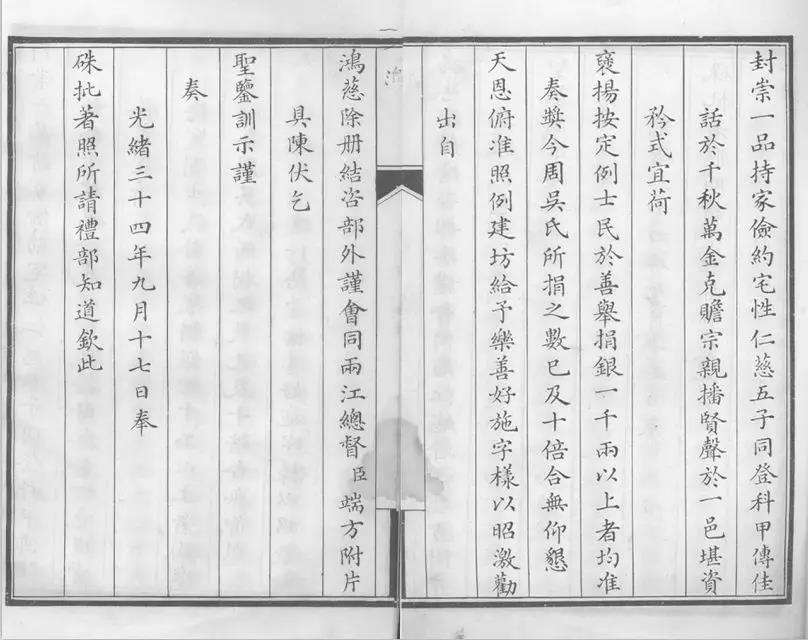 封崇一品持家儉約宅性仁慈五子同登科甲傳佳
話於千秋萬金克贍宗親播賢聲於一邑堪資
矜式宜荷
襃揚按定例士民於善舉捐銀一千兩以上者均准
奏獎今周吳氏所捐之數已及十倍合無仰懇
天恩俯准照例建坊給予樂善好施字樣以昭激勸
出自
鴻慈除册結咨部外謹會同兩江總督臣端方附片
具陳伏乞
聖鑒訓示謹
奏
光緒三十四年九月十七日奉
硃批著照所請禮部知道欽此